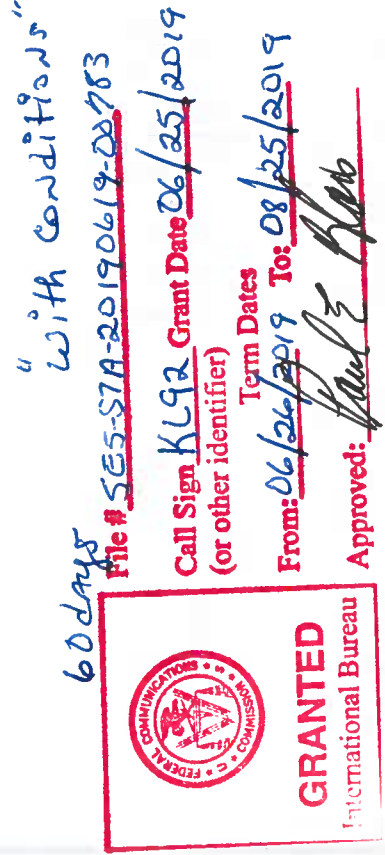 60 days "With conditions"
File # SES-STA-20190619-00783
Call Sign KL92 Grant Date 06/25/2019
(or other identifier)
Term Dates
From: 06/26/2019 To: 08/25/2019
Approved:
FEDERAL COMMUNICATIONS COMMISSION
GRANTED
International Bureau